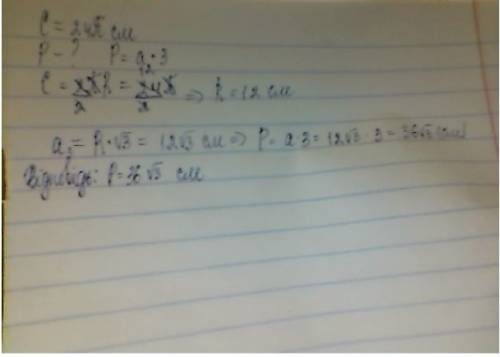 C = 24π см
P - ? P = a · 3
C = 2πR = 24π => R = 12 см
a₃ = R·√3 = 12√3 см => P = a·3 = 12√3 · 3 = 36√3 (см)
Відповідь: P = 36√3 см